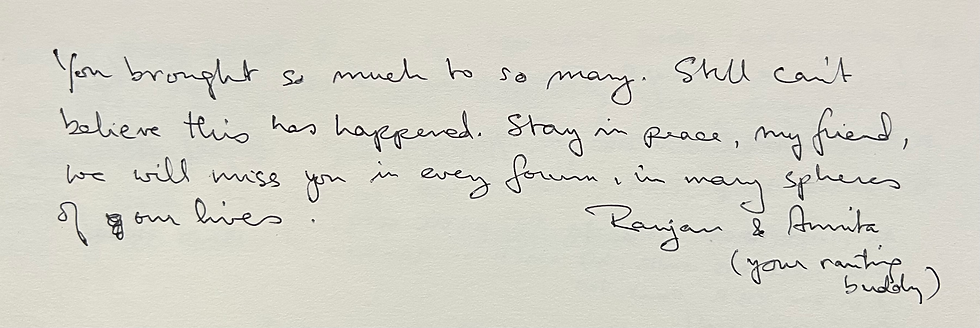 You brought so much to so many. Still can't
believe this has happened. Stay in peace, my friend,
we will miss you in every forum, in many spheres
of our lives.
Ranjan & Amrita
(your ranting
buddy)